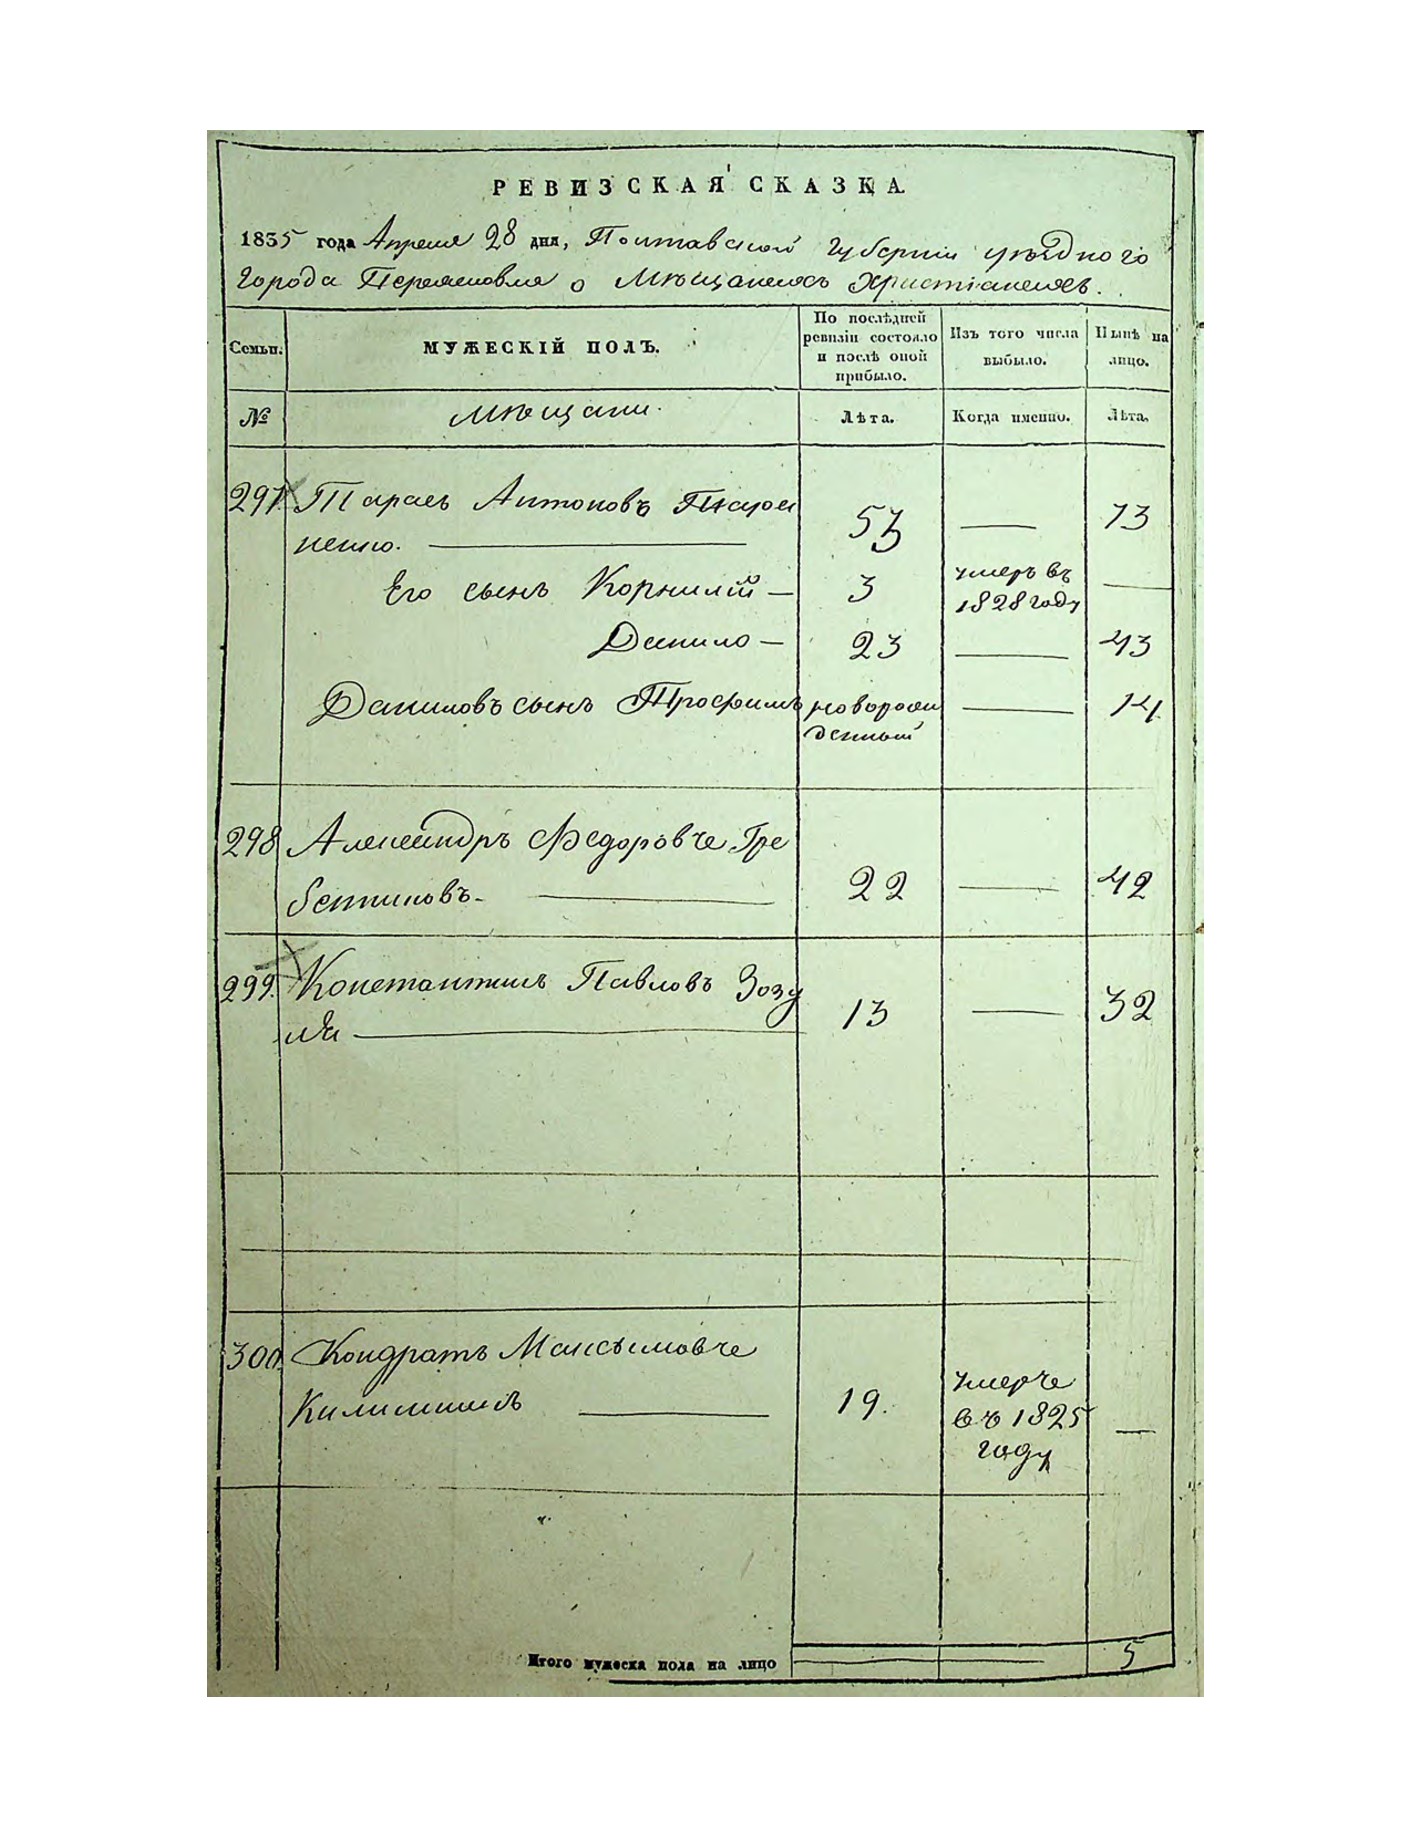 РЕВИЗСКАЯ СКАЗКА.
1835 года Апреля 28 дня, Полтавской Губерніи уѣзднаго
Города Переяславля о Мѣщанехъ Христіанехъ.
Семьи.
МУЖЕСКІЙ ПОЛЪ.
По послѣдней ревизіи состояло и послѣ оной прибыло.
Изъ того числа выбыло.
Нынѣ на лицо.
№
Мѣщане.
Лѣта.
Когда именно.
Лѣта.
297. Тарасъ Антоновъ
ненко. 53 — 73
Его сынъ Корнилій — 3 умеръ въ 1828 году —
Данило — 23 — 43
Даниловъ сынъ Трофимъ новорож
денный — 14.
298 Александръ Федоровъ Гре
бенниковъ. — 22 — 42
299. Константинъ Павловъ Зозу
ля — 13 — 32
300. Кондратъ Максимовъ
Килимникъ — 19. умеръ
въ 1825 —
году
Итого мужеска пола на лицо 5